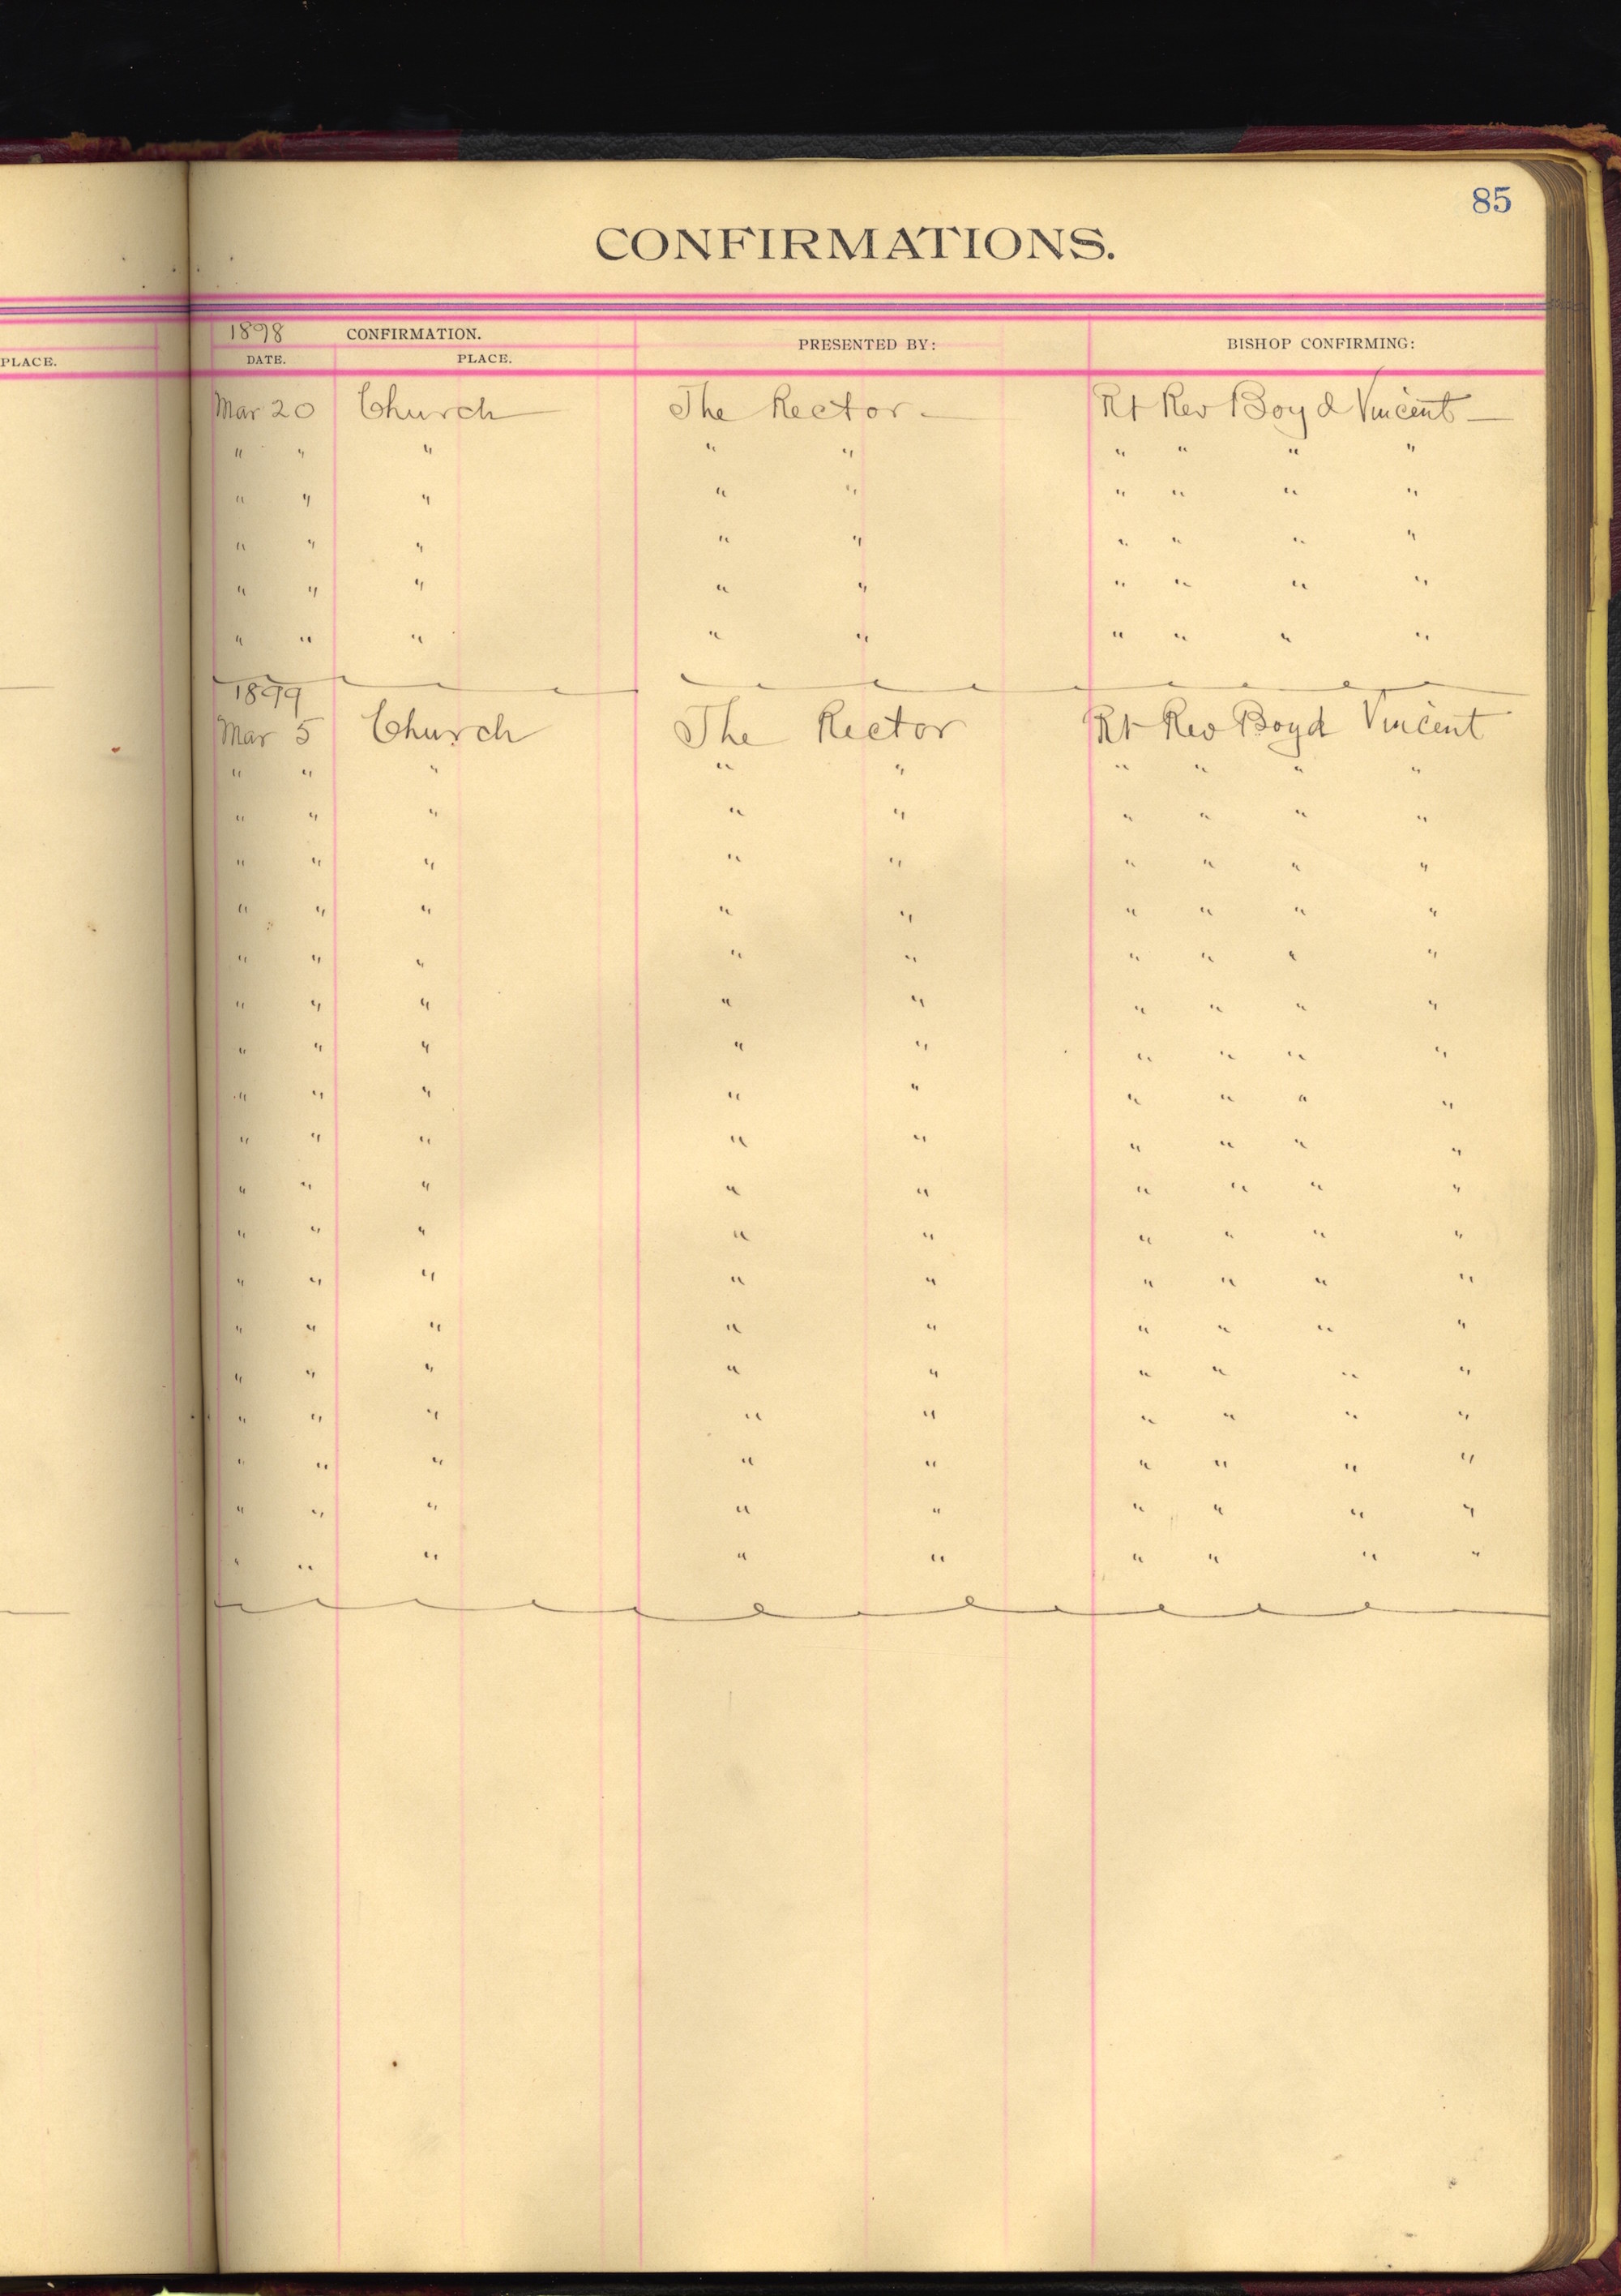 85
CONFIRMATIONS.
1898 CONFIRMATION. PRESENTED BY: BISHOP CONFIRMING:
PLACE. DATE. PLACE.
Mar 20 Church The Rector — Rt Rev Boyd Vincent —
" " " " " " " " "
" " " " " " " " "
" " " " " " " " "
" " " " " " " " "
" " " " " " " " "
1899
Mar 5 Church The Rector Rt Rev Boyd Vincent
" " " " " " " " "
" " " " " " " " "
" " " " " " " " "
" " " " " " " " "
" " " " " " " " "
" " " " " " " " "
" " " " " " " " "
" " " " " " " " "
" " " " " " " " "
" " " " " " " " "
" " " " " " " " "
" " " " " " " " "
" " " " " " " " "
" " " " " " " " "
" " " " " " " " "
" " " " " " " " "
" " " " " " " " "
" " " " " " " " "